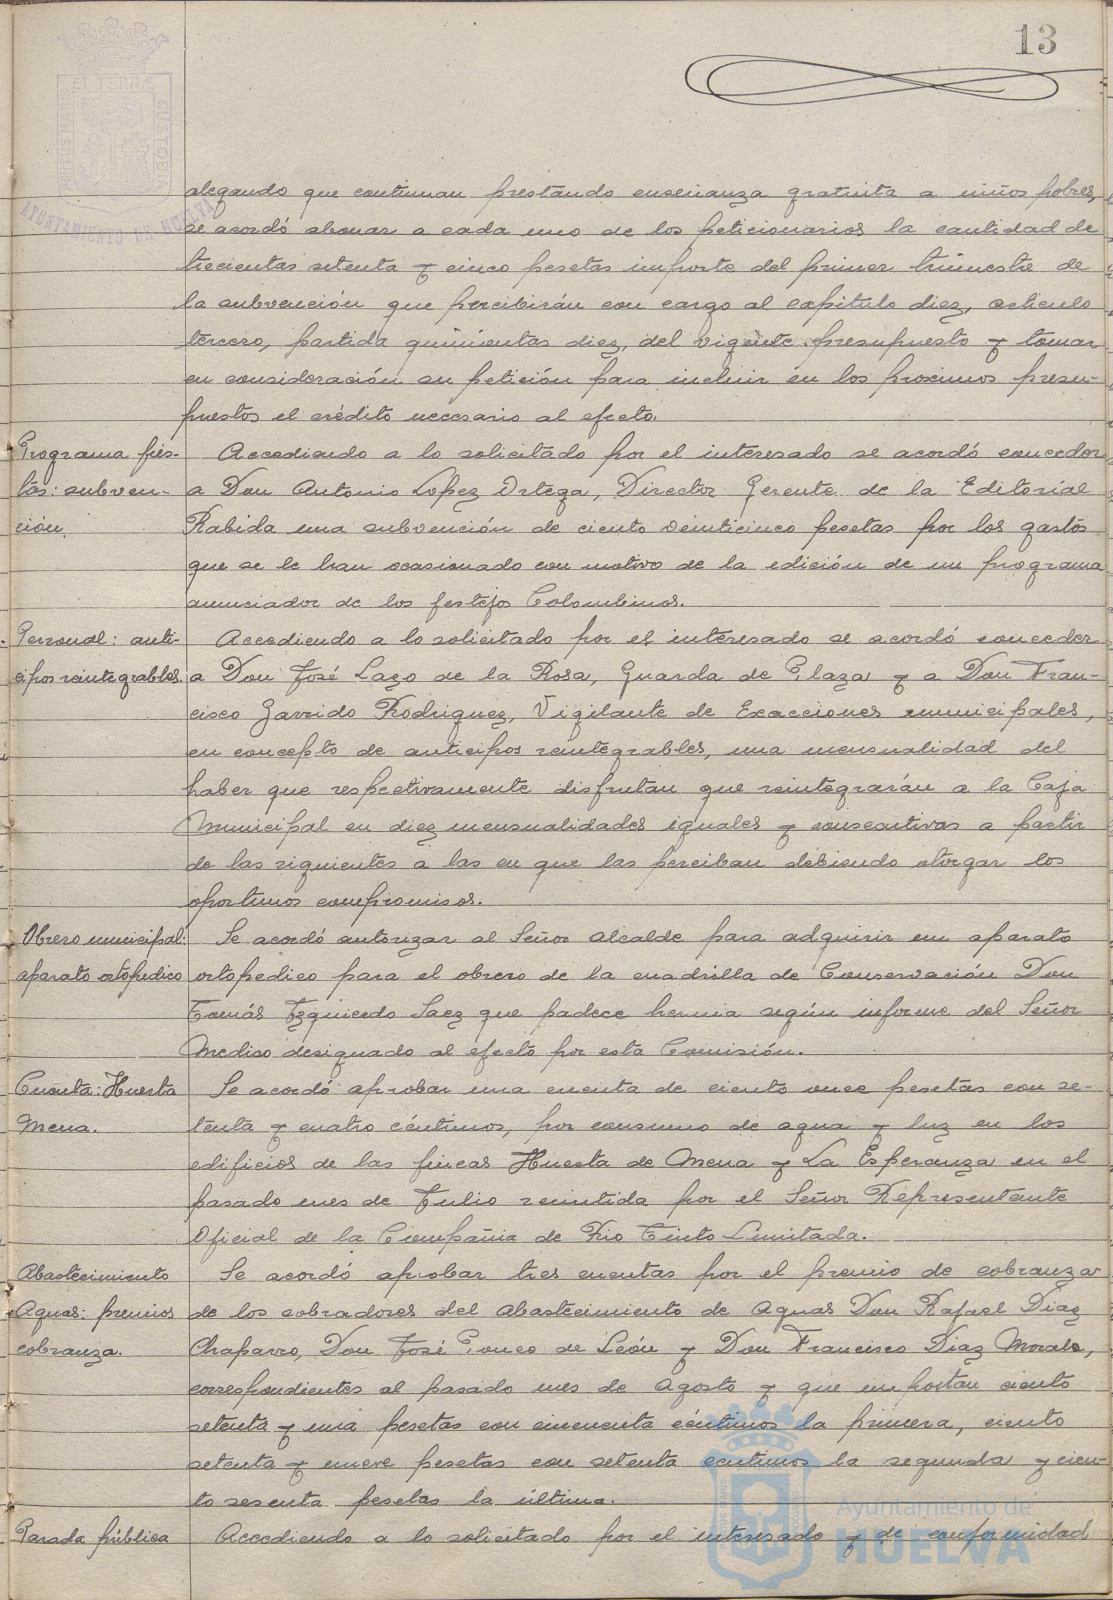 13
PORTUS MARIS
ET TERRÆ
CUSTODIA
AYUNTAMIENTO DE HUELVA
alegando que continuan prestando enseñanza gratuita a niños pobres,
se acordó abonar a cada uno de los peticionarios la cantidad de
trecientas setenta y cinco pesetas importe del primer trimestre de
la subvención que percibirán con cargo al capitulo diez, articulo
tercero, partida quinientas diez, del vigente presupuesto y tomar
en consideración su petición para incluir en los proximos presu-
puestos el crédito necesario al efecto.
Programa fies-
tas: subven-
ción.
Accediendo a lo solicitado por el interesado se acordó conceder
a Don Antonio Lopez Ortega, Director Gerente de la Editorial
Rabida una subvención de ciento veinticinco pesetas por los gastos
que se le han ocasionado con motivo de la edición de un programa
anunciador de los festejos Colombinos.
Personal: anti-
cipos reintegrables.
Accediendo a lo solicitado por el interesado se acordó conceder
a Don José Lazo de la Rosa, Guarda de Plaza y a Don Fran-
cisco Garrido Rodriguez, Vigilante de Exacciones municipales,
en concepto de anticipos reintegrables, una mensualidad del
haber que respectivamente disfrutan que reintegrarán a la Caja
Municipal en diez mensualidades iguales y consecutivas a partir
de las siguientes a las en que las perciban debiendo otorgar los
oportunos compromisos.
Obrero municipal:
aparato ortopedico
Se acordó autorizar al Señor Alcalde para adquirir un aparato
ortopedico para el obrero de la cuadrilla de Conservación Don
Tomás Izquierdo Saez que padece hernia según informe del Señor
Medico designado al efecto por esta Comisión.
Cuenta: Huerta
Mena.
Se acordó aprobar una cuenta de ciento once pesetas con se-
tenta y cuatro céntimos, por consumo de agua y luz en los
edificios de las fincas Huerta de Mena y La Esperanza en el
pasado mes de Julio remitida por el Señor Representante
Oficial de la Compañia de Rio Tinto Limitada.
Abastecimiento
Aguas: premios
cobranza.
Se acordó aprobar tres cuentas por el premio de cobranza
de los cobradores del Abastecimiento de Aguas Don Rafael Diaz
Chaparro, Don José Ponce de León y Don Francisco Diaz Morales,
correspondientes al pasado mes de Agosto y que importan ciento
setenta y una pesetas con cincuenta céntimos la primera, ciento
setenta y nueve pesetas con setenta centimos la segunda y cien-
to sesenta pesetas la última.
Parada pública
Accediendo a lo solicitado por el interesado y de conformidad
Ayuntamiento de
HUELVA